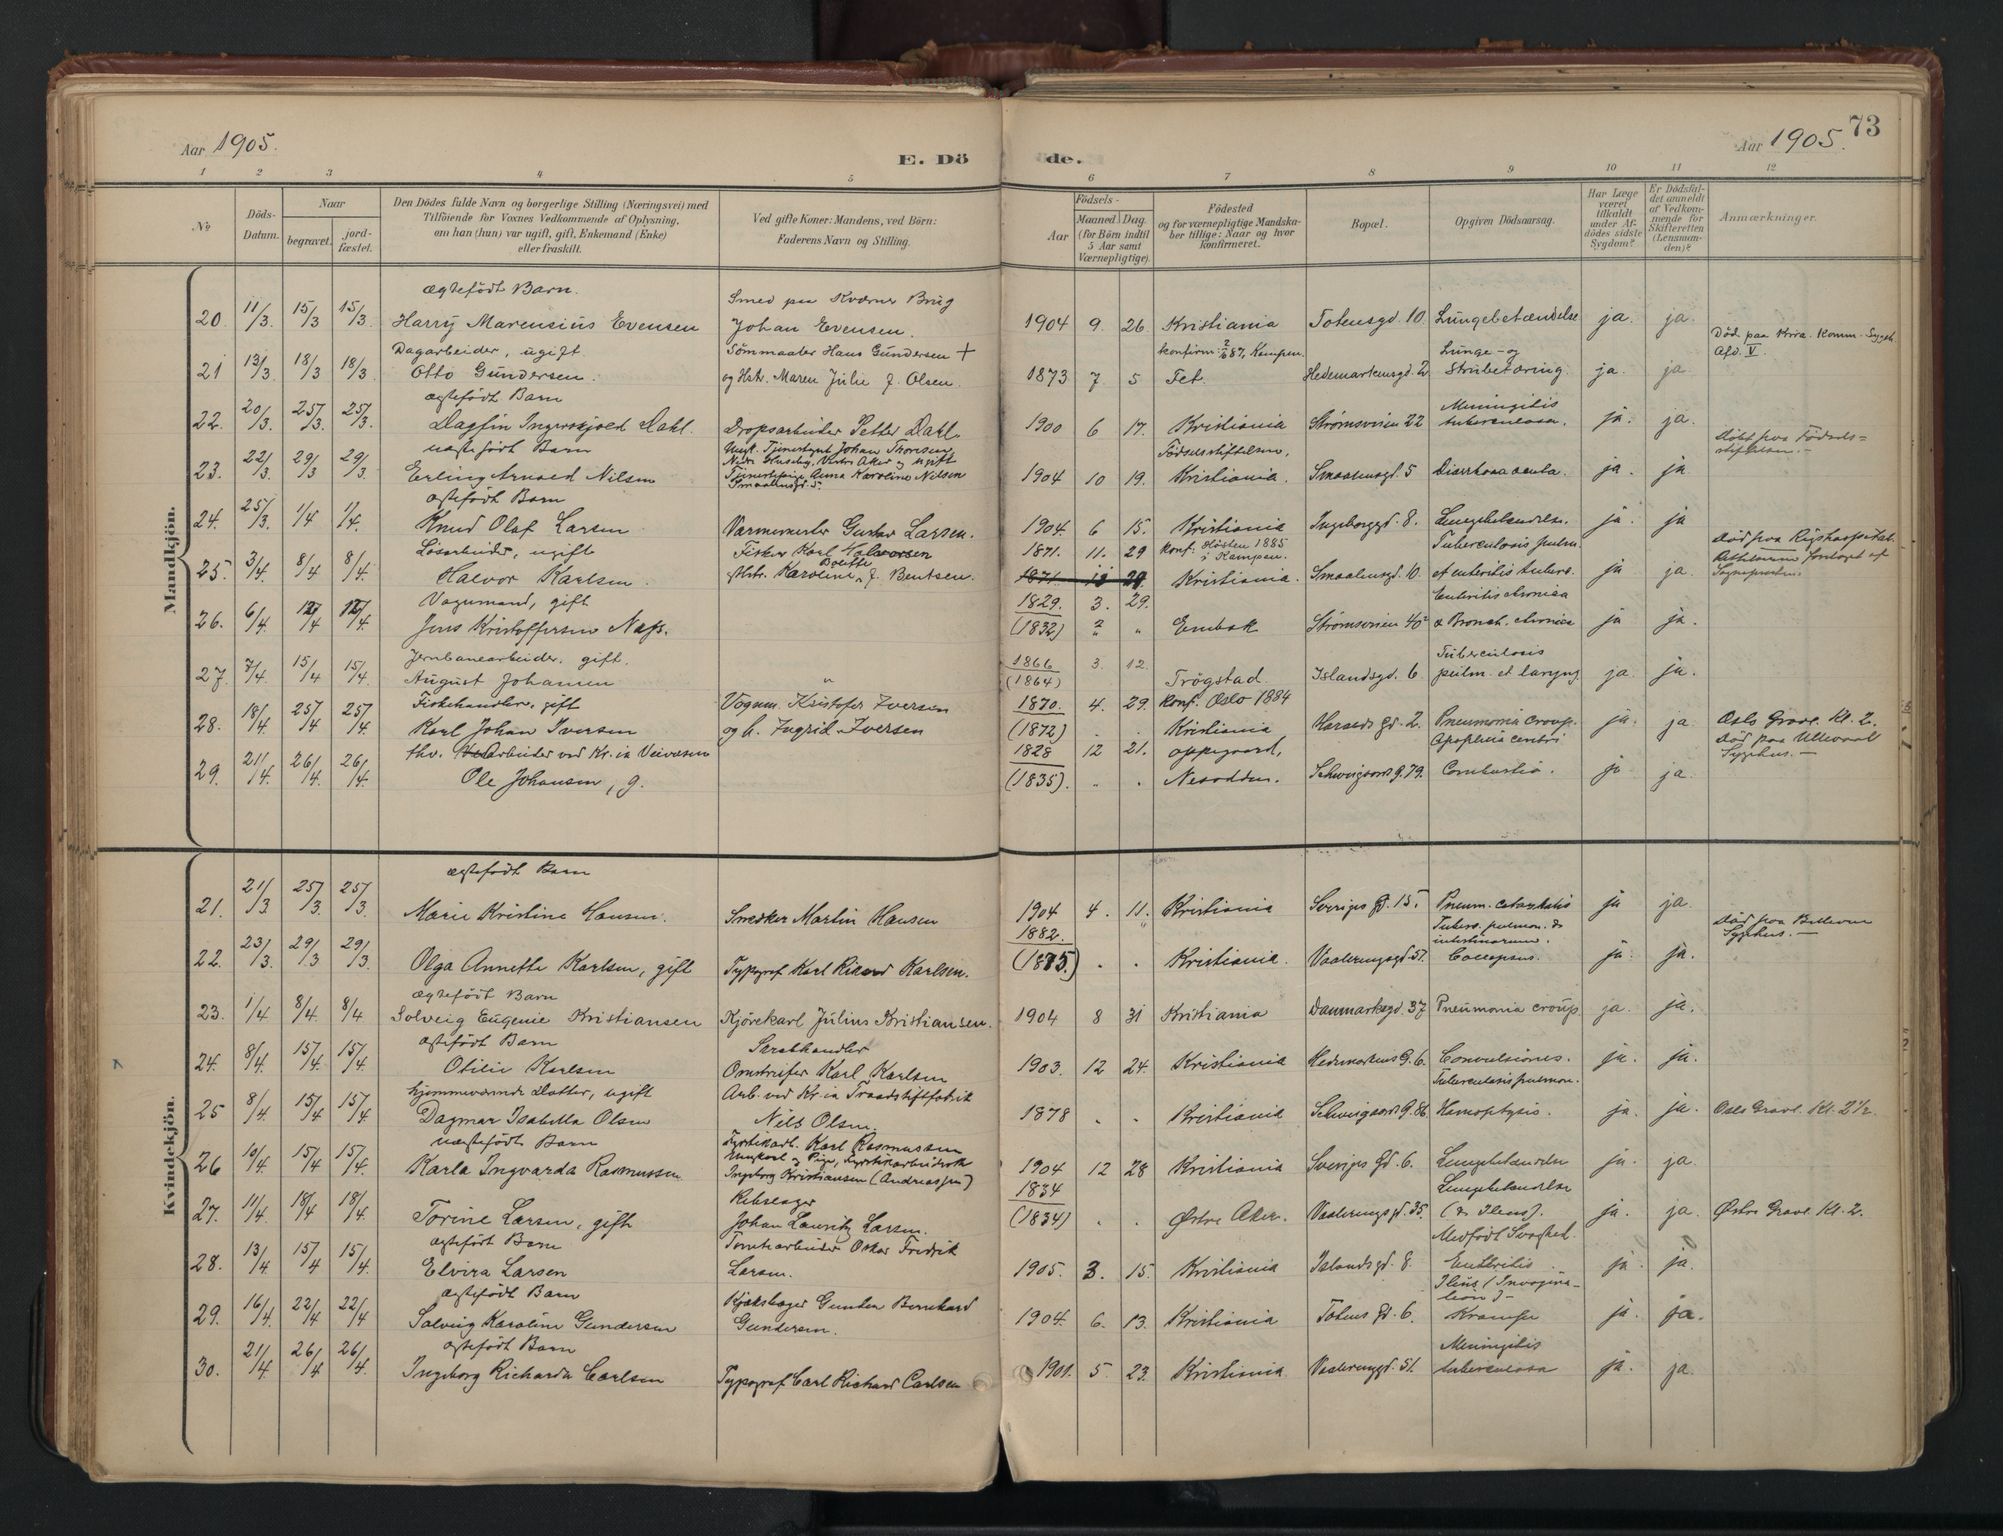 Aar 1905.
E. Dö
de.
Aar 1905.
73
1 2 3 4 5 6 7 8 9 10 11 12
No
Döds-Datum.
Naar
begravet.
jord-fæstet.
Den Dödes fulde Navn og borgerlige Stilling (Næringsvei) med
Tilföiende for Voxnes Vedkommende af Oplysning,
om han (hun) var ugift, gift, Enkemand (Enke)
eller fraskilt.
Ved gifte Koner: Mandens, ved Börn:
Faderens Navn og Stilling.
Födsels-
Aar
Maaned Dag
(for Börn indtil
5 Aar samt
Værnepligtige).
Födested
og for værnepligtige Mandska-
ber tillige: Naar og hvor
konfirmeret.
Bopæl.
Opgiven Dödsaarsag.
Har Læge
været
tilkaldt
under Af-
dödes sidste
Sygdom?
Er Dödsfal-
det anmeldt
af Vedkom-
mende for
Skifteretten
(Lensman-
den)?
Anmærkninger.
Mandkjön.
ægtefödt Barn. Smed paa Kværner Brug
20. 11/3 15/3 15/3. Harry Marensius Evensen Johan Evensen. 1904 9. 26. Kristiania Totensgd. 10. Lungebetændelse ja. ja.
Dagarbeider, ugift. Sömmaater Hans Gundersen + konfirm: 2/6 87, Kampen. Lunge- og Död paa Kria. Komm. Sygeh.
21 13/3 18/3 18/3 Otto Gundersen. og Hst. Maren Julie f. Olsen. 1873 7 5 Fet. Hedemarkensgd. 2 Strubetæring. ja. ja Afd. V.
ægtefödt Barn Meningitis
22. 20/3 25/3. 25/3. Dagfin Ingerskjold Dahl. Dropsarbeider Petter Dahl. 1900 6 17. Kristiania Strømsveien 22 tuberculosa. ja. ja.
uægtefödt Barn Ungk. Tjenestegut Johan Thoresen Födselsstiftelsen, Död paa Födsels=
Vestre Aker og ugift stiftelsen.-
23. 22/3 29/3 29/3 Erling Arnold Nilsen Tjenestepige Anna Karoline Nilsen 1904 10 19. Kristiania. Smaalensgd. 5 Diarrhoea acuta. ja. ja
Smaalensgd. 5.
ægtefödt Barn
24. 25/3. 1/4 1/4. Knud Olaf Larsen Varmemester Gustav Larsen. 1904. 6 15. Kristiania Ingeborggd. 8. Lungebetændelse. ja. ja
Lösarbeider, ugift Fisker Karl Halvorsen 1871. 11. 29 konf. Høsten 1885 i Kampen. Tuberculosis pulm. Död paa Rigshospitalet.
25. 3/4. 8/4. 8/4. Halvor Karlsen. Hstr. Karoline Bolette f. Bentsen. 1871 11 29 Kristiania. Smaalensgd. 10. et enteritis tuberc. ja ja.
Vognmand, gift 1829. 3. 29. Enteritis chronica
26. 6/4 12/4 12/4. Jens Kristoffersen Næss. (1832) 2 " Enebak Strømsveien 40² & Bronch. chronica ja ja.
Jernbanearbeider. gift. 1866 3. 12. Tuberculosis
27. 7/4. 15/4 15/4. August Johansen " (1864) Trögstad. Islandsgd. 6 pulm. et laryng ja. ja.
Fiskehandler, gift Vognm. Kristofer Iversen 1870. 4. 29. konf. Oslo 1884
28. 18/4 25/4 25/4. Karl Johan Iversen og h. Ingrid Iversen (1872) . . Kristiania Haralds Gd. 2. Pneumonia croup. ja. ja. Oslo Grav. Kl. 2.
fhv. Arbeider ved Kr.ia Veivæsen 1828 12 21. Oppegaard, Apoplexia cerebri Död paa Ullevaal
29. 21/4. 26/4 26/4. Ole Johansen, g. (1835). . . Nesodden. Schweigaards G. 79. Combustio. ja ja. Sygehus.-
Kvindekjön.
ægtefödt Barn
21. 21/3 25/3 25/3. Marie Kristine Hansen. Snedker Martin Hansen 1904 4. 11. Kristiania Sverigs Gd. 15. Pneum. catarhalis ja ja.
1882. Tuberc. pulmon. & intestinorum. Död paa Ullevaal Sygehus.-
22. 23/3 29/3 29/3. Olga Annette Karlsen, gift Typograf Karl Rikard Karlsen. (1875.) . . Kristiania. Vaalerengsgd. 51. Collapsus. ja. ja.
ægtefödt Barn
23. 1/4 8/4. 8/4 Solveig Eugenie Kristiansen Kjörekarl Julius Kristiansen. 1904 8 31 Kristiania Danmarksgd. 37 Pneumonia croup. ja. ja.
ægtefödt Barn
24. 8/4. 15/4. 15/4. Otilie Karlsen Omstreifer Karl Karlsen 1903. 12 24. Kristiania Hedemarkens G. 6. Convulsiones. ja. ja.
hjemmeværende Datter, ugift Arb. ved Kr.ia Traadstiftfabrik Tuberculosis pulmon.
25 8/4. 15/4 15/4. Dagmar Isabella Olsen Nils Olsen. 1878 . . Kristiania Schweigaards G. 86 Hæmoptysis. ja. ja. Oslo Grav. Kl. 2½.
uægtefödt Barn Fyrstikarb. Karl Rasmussen
Ungkarl og Pige, Fyrstikarbeiderske
26 10/4. 15/4. 15/4. Karla Ingvarda Rasmussen Ingeborg Kristiansen (Andreassen) 1904 12 28 Kristiania Sverigs Gd. 6. Lungebetændelse ja. ja.
Rebslager 1834 Lungebetændelse
27. 11/4. 18/4 18/4. Torine Larsen, gift Johan Lauritz Larsen. (1834) . . Østre Aker. Vaalerengsgd. 35. (& Ileus). ja. ja. Østre Grav. Kl. 2.
ægtefödt Barn Tomtearbeider Oskar Fredrik Medfödt Svaghed.
28. 13/4. 15/4 15/4. Elvira Larsen Larsen. 1905. 3. 15. Kristiania Islandsgd. 8 Enteritis ja. ja.
ægtefödt Barn Gunder Bernhard Ileus (Invagina-tion)-
29. 16/4. 22/4 22/4. Solveig Karoline Gundersen Gundersen. 1904. 6. 13. Kristiania Totens Gd. 6. Krampe ja. ja.
ægtefödt Barn Meningitis
30. 21/4. 26/4 26/4. Ingeborg Richarda Carlsen Typograf Carl Richard Carlsen 1901. 5 23. Kristiania Vaalerenggd. 51. tuberculosa ja. ja.